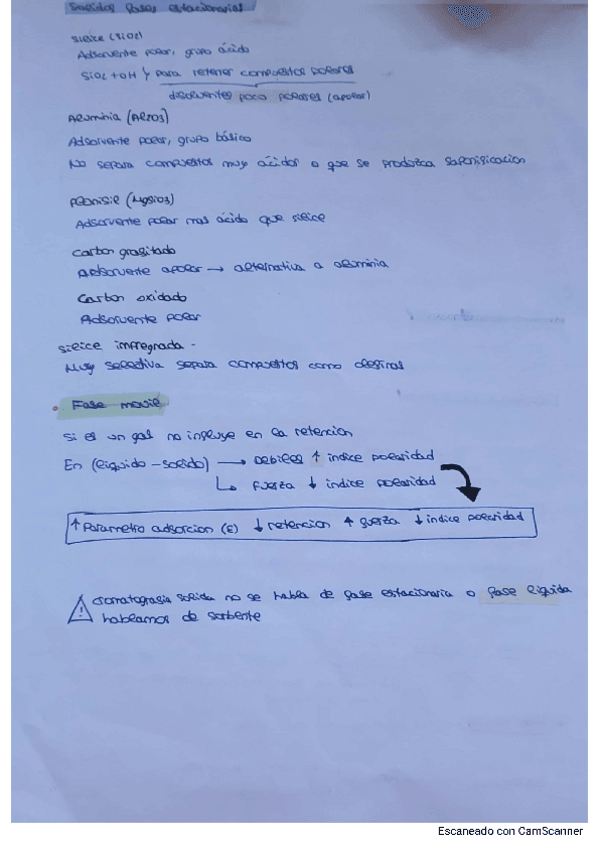 Solidos fases estacionarias
Silice (SiO2)
Adsorvente polar, grupo ácido
SiO2 + OH y para retener compuestos polares
disolventes poco polares (apolar)
Alumina (Al2O3)
Adsolvente polar, grupo básico
No separa compuestos muy ácidos o que se produzca saponificacion
(MgSiO3)
Adsolvente polar mas ácido que silice
Carbon grafitado
Adsolvente apolar → alternativa a alumina
Carbon oxidado
Adsolvente polar
Silice impregnada -
Muy selectiva separa compuestos como olefinas
• Fase movil
Si es un gas no influye en la retencion
En (liquido - solido) → Debiles ↑ indice polaridad
↳ Fuerza ↓ indice polaridad
↑ Parametro adsorcion (E) ↓ retencion ↑ fuerza ↓ indice polaridad
⚠ cromatografia solida no se habla de fase estacionaria o fase liquida
hablamos de sorbente
Escaneado con CamScanner